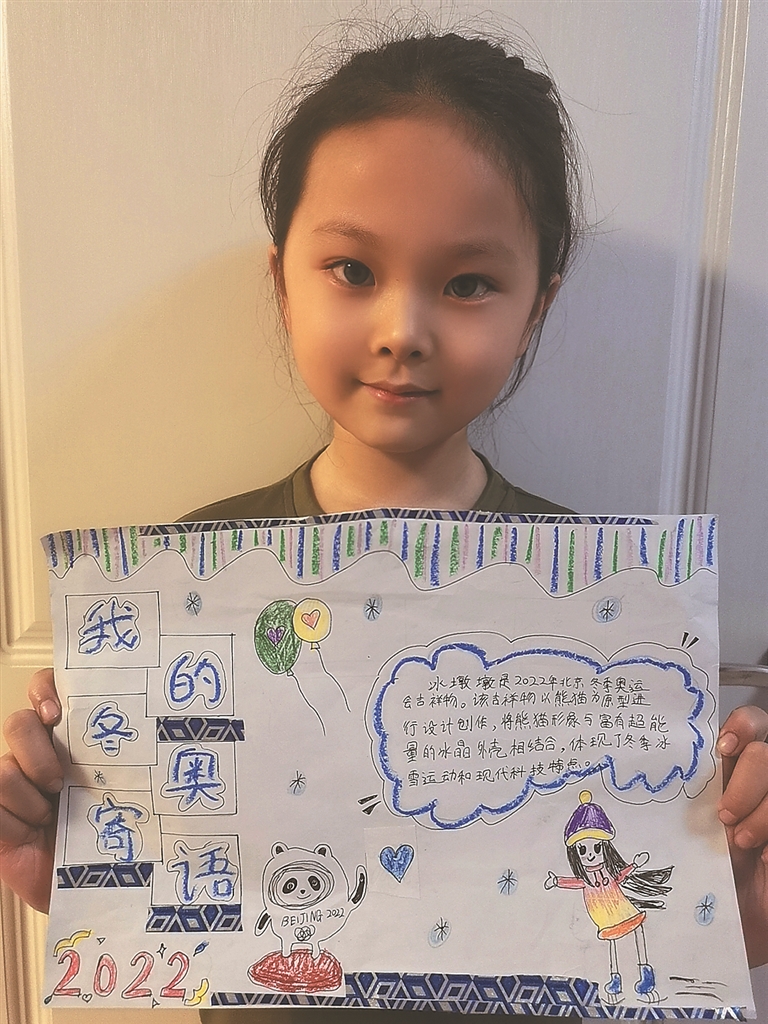 我的冬奥寄语
冰墩墩是2022年北京冬季奥运
会吉祥物。该吉祥物以熊猫为原型进
行设计创作，将熊猫形象与富有超能
量的冰晶外壳相结合，体现了冬季冰
雪运动和现代科技特点。
BEIJING 2022
2022